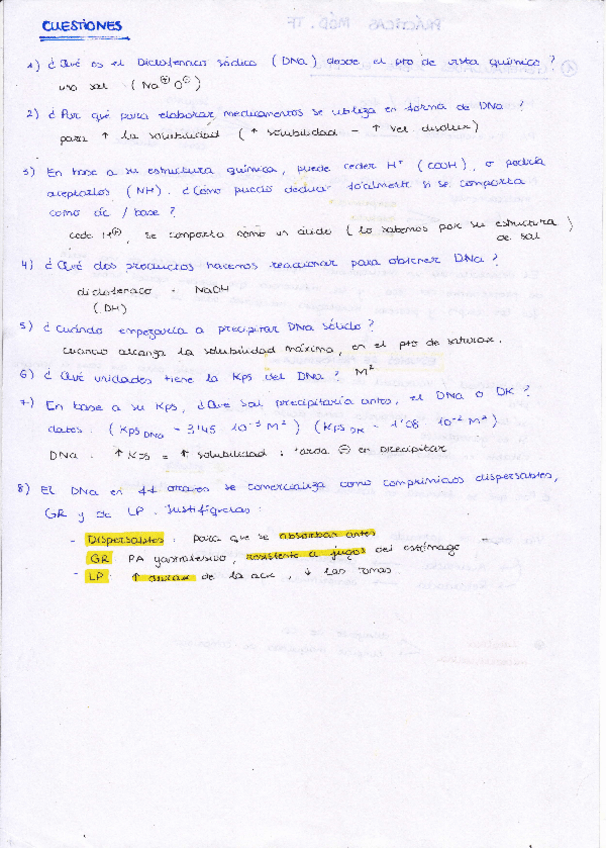 CUESTIONES
1) ¿Qué es el Diclofenaco sódico (DNa) desde el pto de vista químico?
una sal (Na⊕ O⊖)
2) ¿Por qué para elaborar medicamentos se utiliza en forma de DNa?
para ↑ la solubilidad (↑ solubilidad - ↑ vel disoluc)
3) En base a su estructura química, puede ceder H⁺ (COOH), o podría
aceptarlos (NH). ¿Cómo puedo deducir totalmente si se comporta
como ác / base?
cede H⊕, se comporta como un ácido (lo sabemos por su estructura)
de sal
4) ¿Qué dos productos hacemos reaccionar para obtener DNa?
diclofenaco - NaOH
(DH)
5) ¿Cuándo empezaría a precipitar DNa sólido?
cuando alcanza la solubilidad máxima, en el pto de saturac.
6) ¿Qué unidades tiene la Kps del DNa? M²
7) En base a su Kps, ¿Que sal precipitaría antes, el DNa o DK?
datos: (Kps DNa - 3'45 10⁻³ M²) (Kps DK - 1'08 10⁻² M²)
DNa. ↑ Kps = ↑ solubilidad : tarda ⊖ en precipitar
8) El DNa en se comercializa como comprimidos dispersables,
GR y de LP. Justifíquelas:
- Dispersables: para que se absorban antes
GR: PA gastrolesivo, resistente a jugos del estómago
- LP: ↑ durac de la acc, ↓ las tomas.